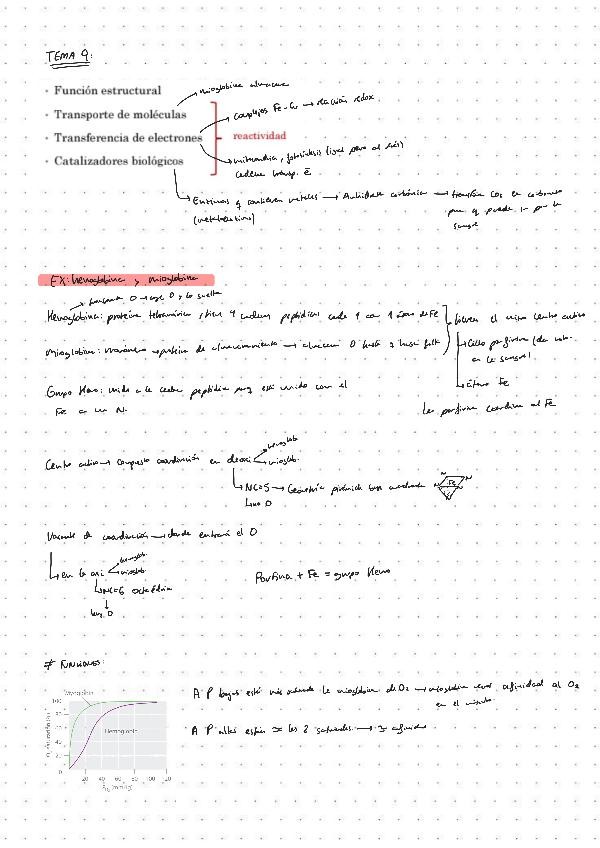 TEMA 9:
mioglobina almacena
• Función estructural
• Transporte de moléculas
complejos Fe-Cu → reacción redox
• Transferencia de electrones
reactividad
• Catalizadores biológicos
mitocondria, fotosíntesis
cadena transp. e-
Enzimas q contienen metales → Anhidrasa carbónica → transforma CO2 en carbonato
(metaloenzimas)
para q pueda ir por la
sangre
EX: hemoglobina y mioglobina
transporta O → coge O y lo suelta
Hemoglobina: proteína tetramérica, tiene 4 cadenas peptídicas cada 1 con 1 átomo de Fe
tienen el mismo centro activo
Mioglobina: monómero → proteína de almacenamiento → almacena O hasta q hace falta
Ciclo porfirina
en la sangre)
Grupo Hemo: unido a la cadena peptídica xq está unido con el
Átomo Fe
Fe a un N.
La porfirina coordina al Fe
Centro activo → compuesto coordinación en deoxi
hemoglob.
mioglob.
NC=5 → Geometría pirámide base cuadrada
N
N
Fe
N
no O
Vacante de coordinación → donde entrará el O
en la oxi
hemoglob.
mioglob.
NC=6 octaédrica
hay O
Porfirina + Fe = grupo Hemo
≠ FUNCIONES:
Myoglobin
100
80
60
40
20
0
Hemoglobin
20 40 60 80 100 120
(mm Hg)
A P bajas está más saturada la mioglobina de O2 → mioglobina tiene afinidad al O2
en el músculo
A P altas están ≈ las 2 saturadas → ≈ afinidad